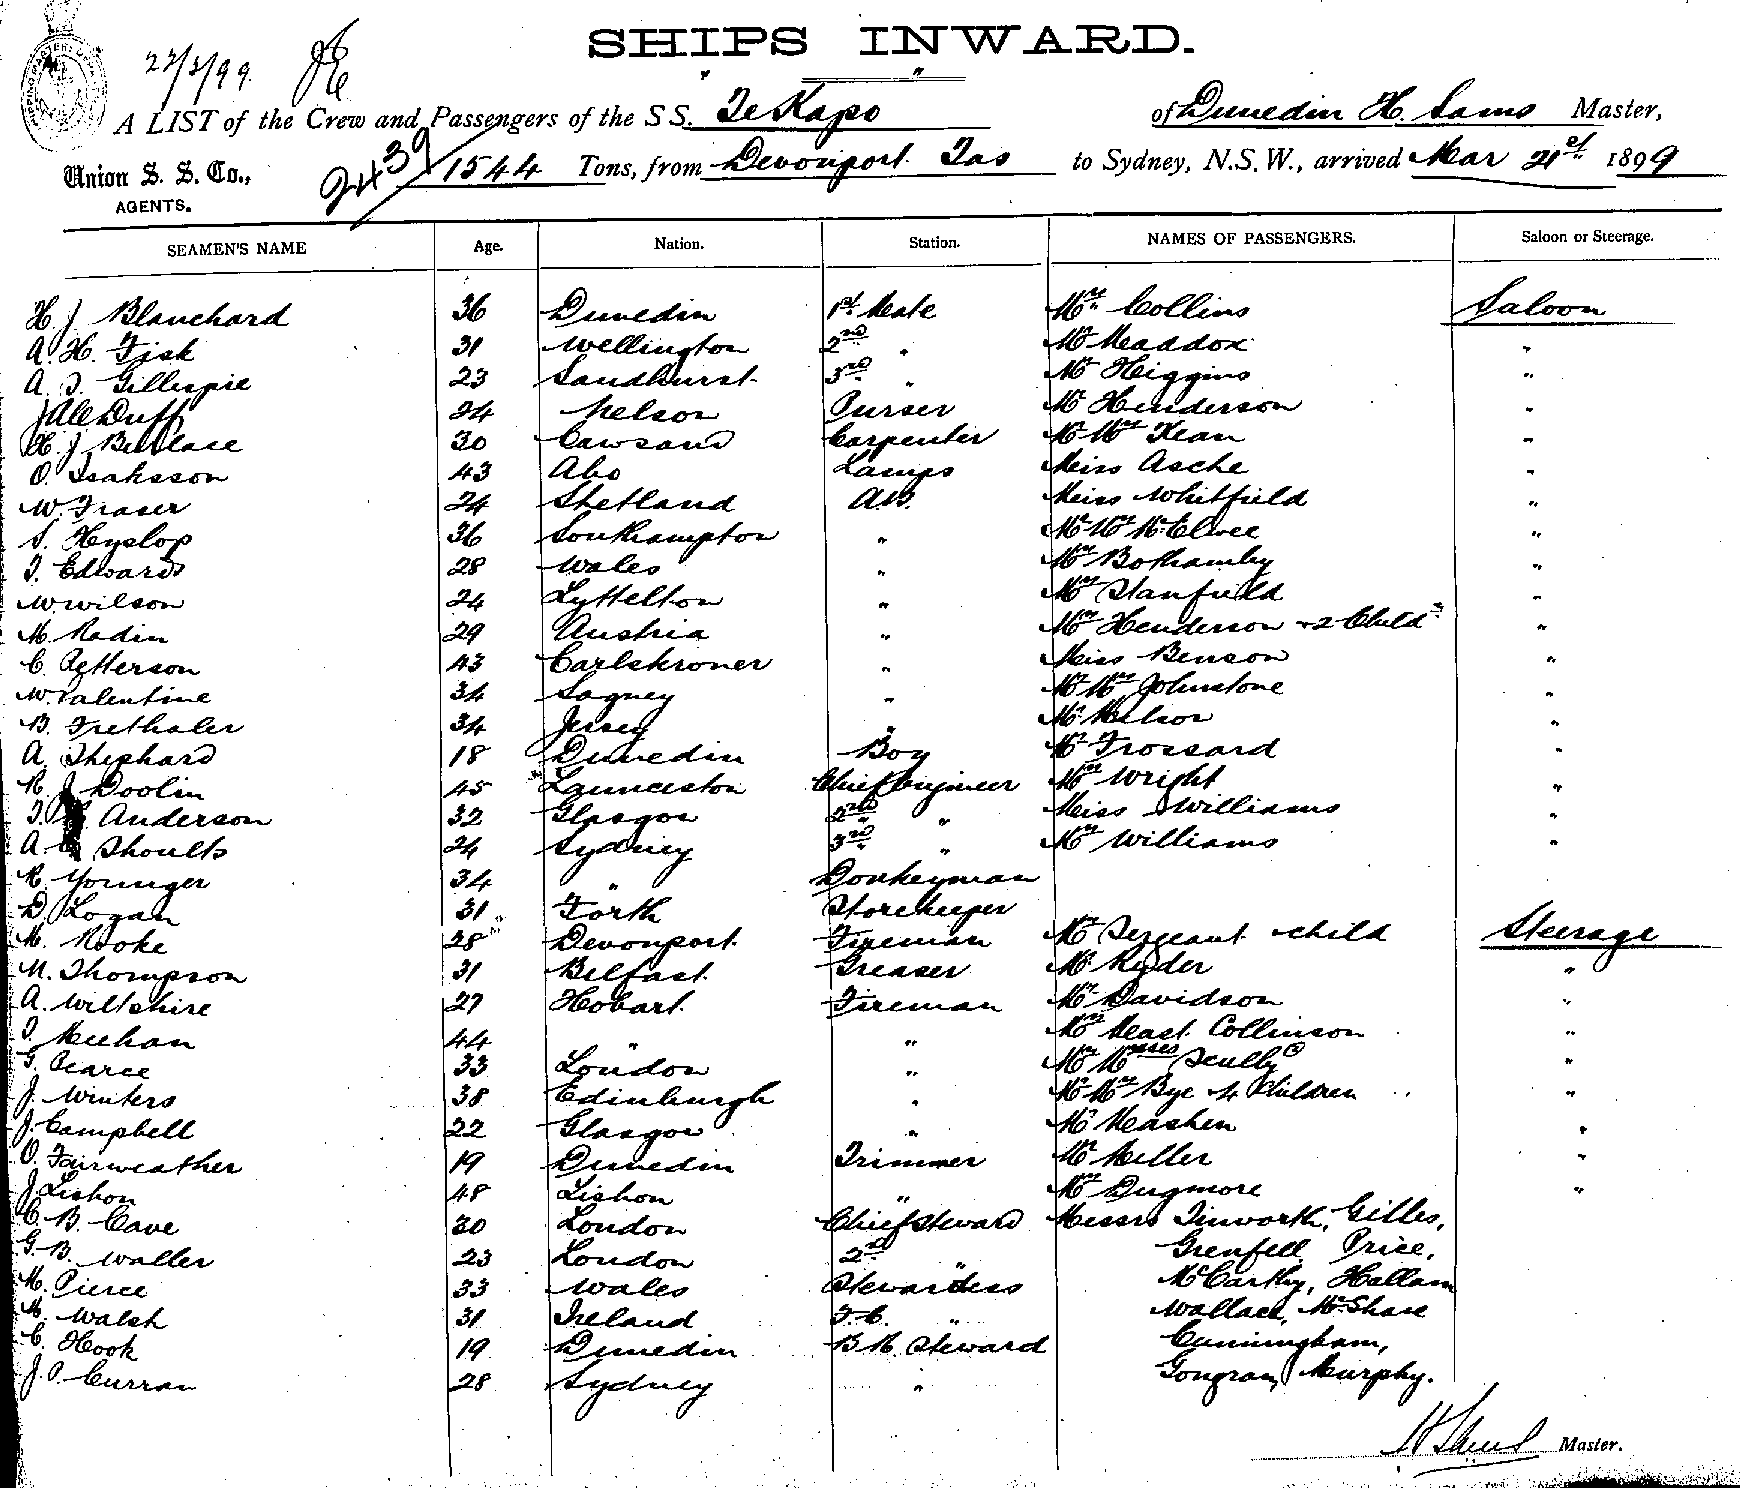 SHIPS INWARD.
22/3/99.
A LIST of the Crew and Passengers of the S S. TeKapo of Dunedin H. Sams Master,
Union S. S. Co., AGENTS. 2439 1544 Tons, from Devonport Tas to Sydney, N.S.W., arrived Mar 21st 1899
SEAMEN'S NAME Age. Nation. Station. NAMES OF PASSENGERS. Saloon or Steerage.
H. J Blanchard 36 Dunedin 1st Mate Mrs Collins Saloon
A. H. Fisk 31 Wellington 2nd " Mr Maddox "
A. T. Gillespie 23 Sandhurst 3rd " Mr Higgins "
Duff 24 Nelson Purser Mr Henderson "
H. J 30 Cawsand Carpenter Mr Mrs Kean "
O. Isaksson 43 Abo Lamps Miss Asche "
W. Fraser 24 Shetland A.B. Miss Whitfield "
S. Hyslop 36 Southampton " Mr Mrs McElwee "
T. Edwards 28 Wales " Mrs Bothamby "
W. Wilson 24 Lyttelton " Mrs Stanfield "
M. Radin 29 Austria " Mrs Henderson + 2 Childn "
C. Petterson 43 Carlskroner " Miss Benson "
W. Valentine 34 " Mr Mrs Johnstone "
B. Trethaler 34 Jersey " Mr "
A. Shephard 18 Dunedin Boy Mr Frossard "
R. J Doolin 45 Launceston Chief Engineer Mrs Wright "
T. Anderson 32 Glasgow 2nd " Miss Williams "
A Shoults 24 Sydney 3rd " Mrs Williams "
R. Younger 34 " Donkeyman
D. Logan 31 Forth Storekeeper
M. Rooke 28 Devonport Fireman Mr Sergeant + child Steerage
M. Thompson 31 Belfast Greaser Mr Ryder "
A. Wiltshire 27 Hobart Fireman Mr Davidson "
T. Meehan 44 " " Mrs Mast. Collinson "
G. Pearce 33 London " Mrs Scully "
J. Winters 38 Edinburgh " Mr Mrs Bye 4 Children "
J. Campbell 22 Glasgow " Mr Mashen "
O. Fairweather 19 Dunedin Trimmer Mr Miller "
J. Lisbon 48 Lisbon " Mr Dugmore "
C. B. Cave 30 London Chief Steward Messrs Tinworth, Gilles,
G. B. Waller 23 London 2nd " Grenfell Price,
M. Pierce 33 Wales Stewardess McCarthy, Hallam
M. Walsh 31 Ireland F.C. " Wallace, McShane
C. Hook 19 Dunedin B M. Steward Cunningham,
J. P. Curran 28 Sydney " Murphy.
H Sams Master.